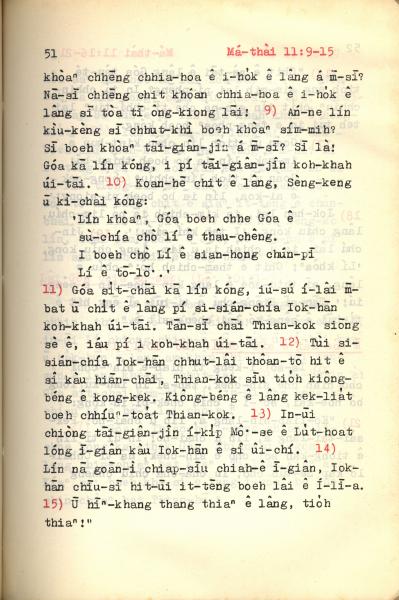 51 Má-thài 11:9-15
khòaⁿ chhēng chhia-hoa ê i-ho̍k ê lâng á m̄-sī?
Nā-sī chhēng chit khóan chhia-hoa ê i-ho̍k ê
lâng sī tòa tī ông-kiong lāi! 9) Án-ne lín
kìu-kèng sī chhut-khì boeh khòaⁿ sím-mih?
Sī boeh khòaⁿ tāi-giân-jîn á m̄-sī? Sī là!
Góa kā lín kóng, i pí tāi-giân-jîn koh-khah
úi-tāi. 10) Koan-hē chit ê lâng, Sèng-keng
ū kì-chài kóng:
'Lín khòaⁿ, Góa boeh chhe Góa ê
sù-chía chò lí ê thâu-chêng.
I boeh chò Lí ê sian-hong chún-pī
Lí ê tō-lō͘.'
11) Góa si̍t-chāi kā lín kóng, iú-sú í-lâi m̄-
bat ū chi̍t ê lâng pí si-sián-chía Iok-hān
koh-khah úi-tāi. Tān-sī chāi Thian-kok siōng
sè ê, iáu pí i koh-khah úi-tāi. 12) Tùi si-
sián-chía Iok-hān chhut-lâi thôan-tō hit ê
sî kàu hiān-chāi, Thian-kok sīu tio̍h kiông-
béng ê kong-kek. Kiông-béng ê lâng kek-lia̍t
boeh chhíuⁿ-toa̍t Thian-kok. 13) In-ūi
chiòng tāi-giân-jîn í-ki̍p Mô͘-se ê Lu̍t-hoat
lóng ī-giân kàu Iok-hān ê sî úi-chí. 14)
Lín nā goān-ì chiap-sīu chiah-ê ī-giân, Iok-
hān chīu-sī hit-ūi it-tēng boeh lâi ê Í-lī-a.
15) Ū hīⁿ-khang thang thiaⁿ ê lâng, tio̍h
thiaⁿ!"